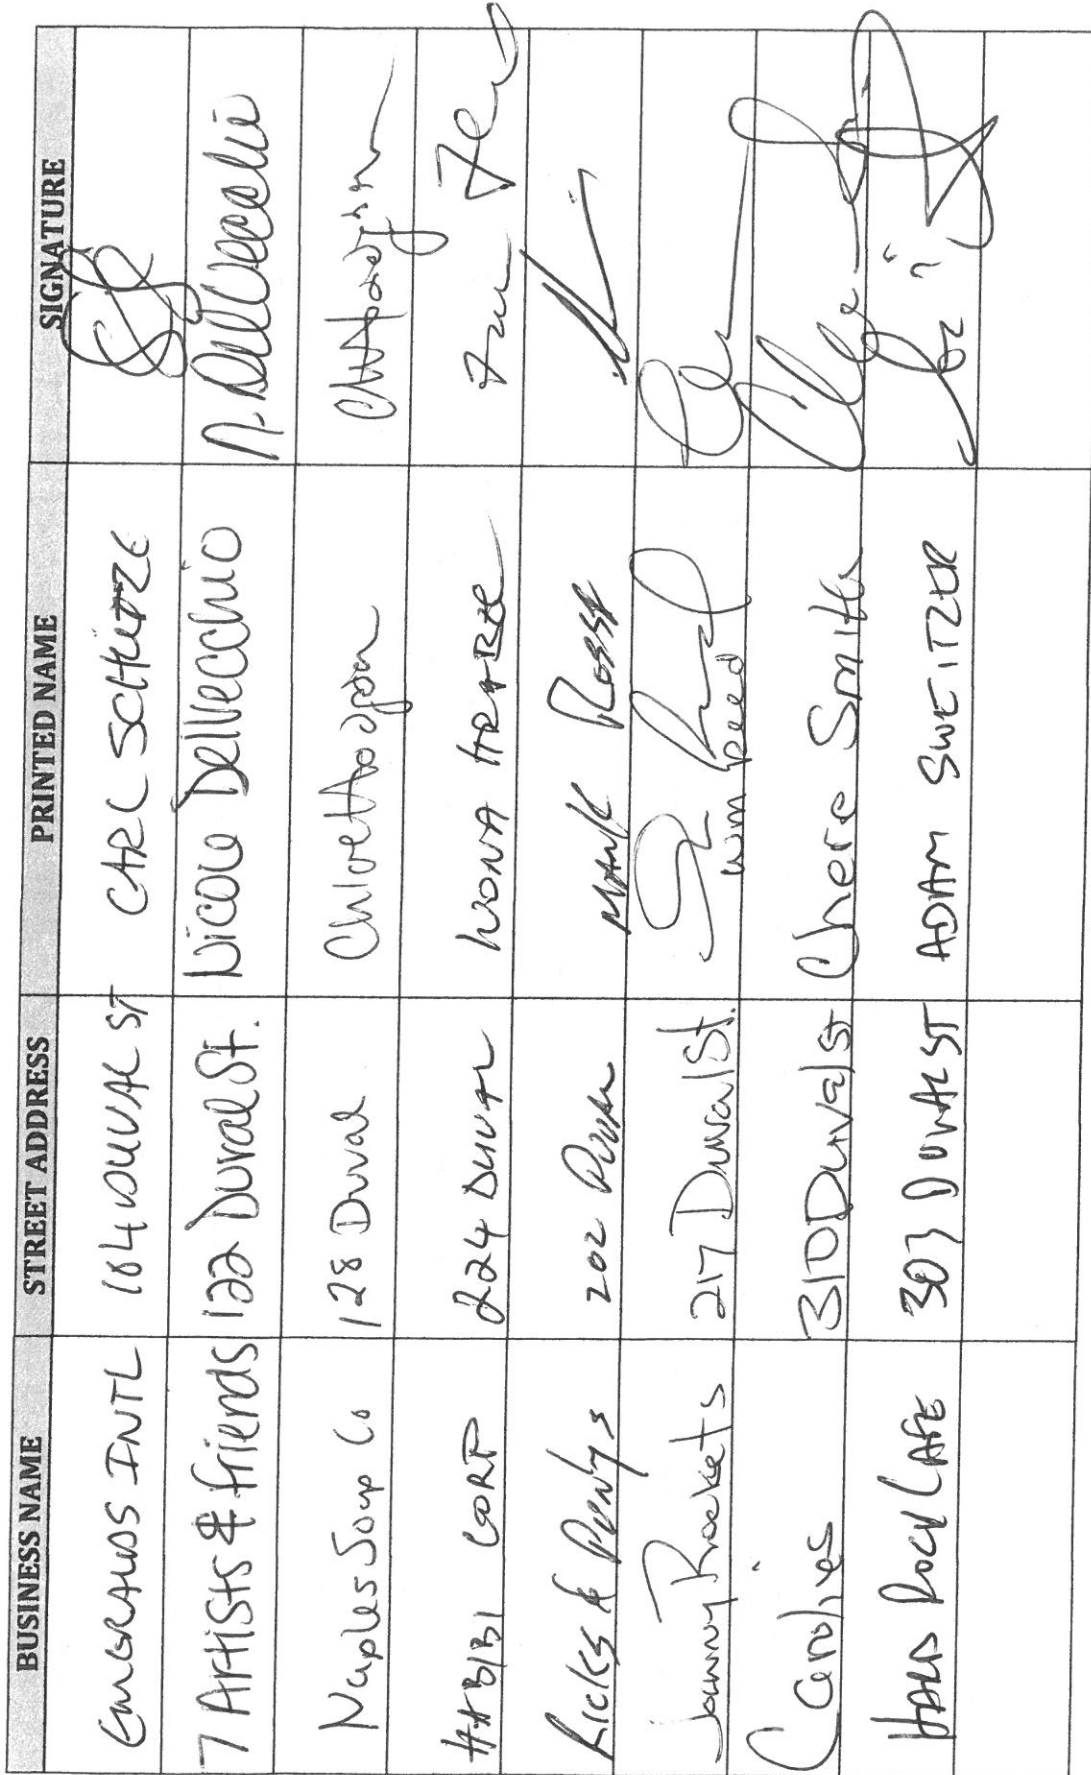 BUSINESS NAME STREET ADDRESS PRINTED NAME SIGNATURE
EMERALDS INTL 104 DUVAL ST CARL SCHUTZE
7 Artists & friends 122 Duval St. Nicole Dellvecchio N. Dellvecchio
Naples Soap Co 128 Duval Chloe
HABIBI CORP 224 DUVAL
Ricks & Durtys 202 Duval Mark Rossi
Johnny Rockets 217 Duval St. Wm Reed
Carolines 310 Duval St Chere Smith
HARD ROCK CAFE 303 DUVAL ST ADAM SWEITZER